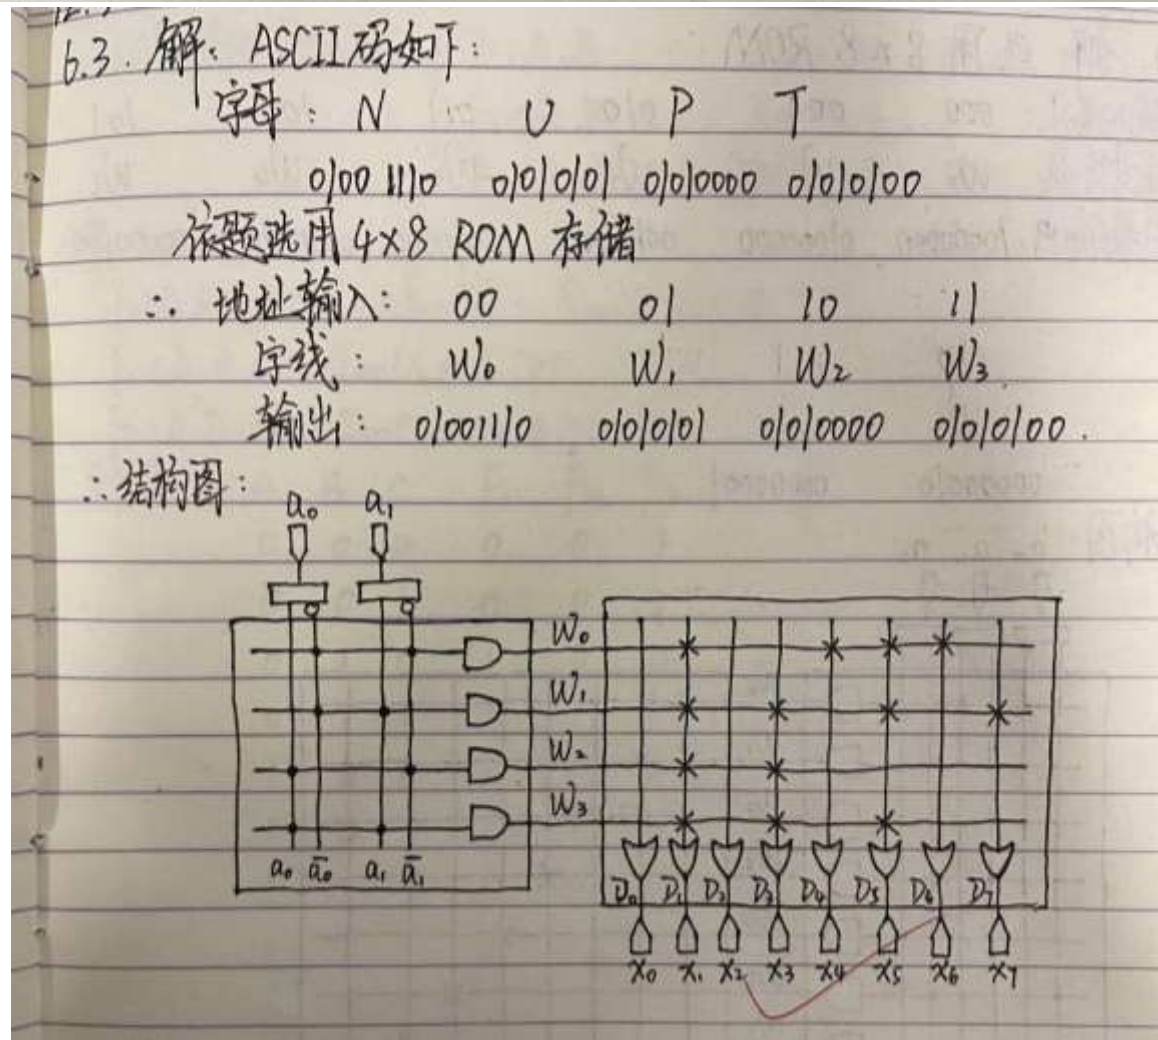 6.3. 解: ASCII码如下:
字母: N U P T
01001110 01010101 01010000 01010100
依题选用 4×8 ROM 存储
∴ 地址输入: 00 01 10 11
字线: W₀ W₁ W₂ W₃
输出: 01001110 01010101 01010000 01010100.
∴结构图:
a₀ a₁
W₀
W₁
W₂
W₃
a₀ ā₀ a₁ ā₁
D₀ D₁ D₂ D₃ D₄ D₅ D₆ D₇
x₀ x₁ x₂ x₃ x₄ x₅ x₆ x₇